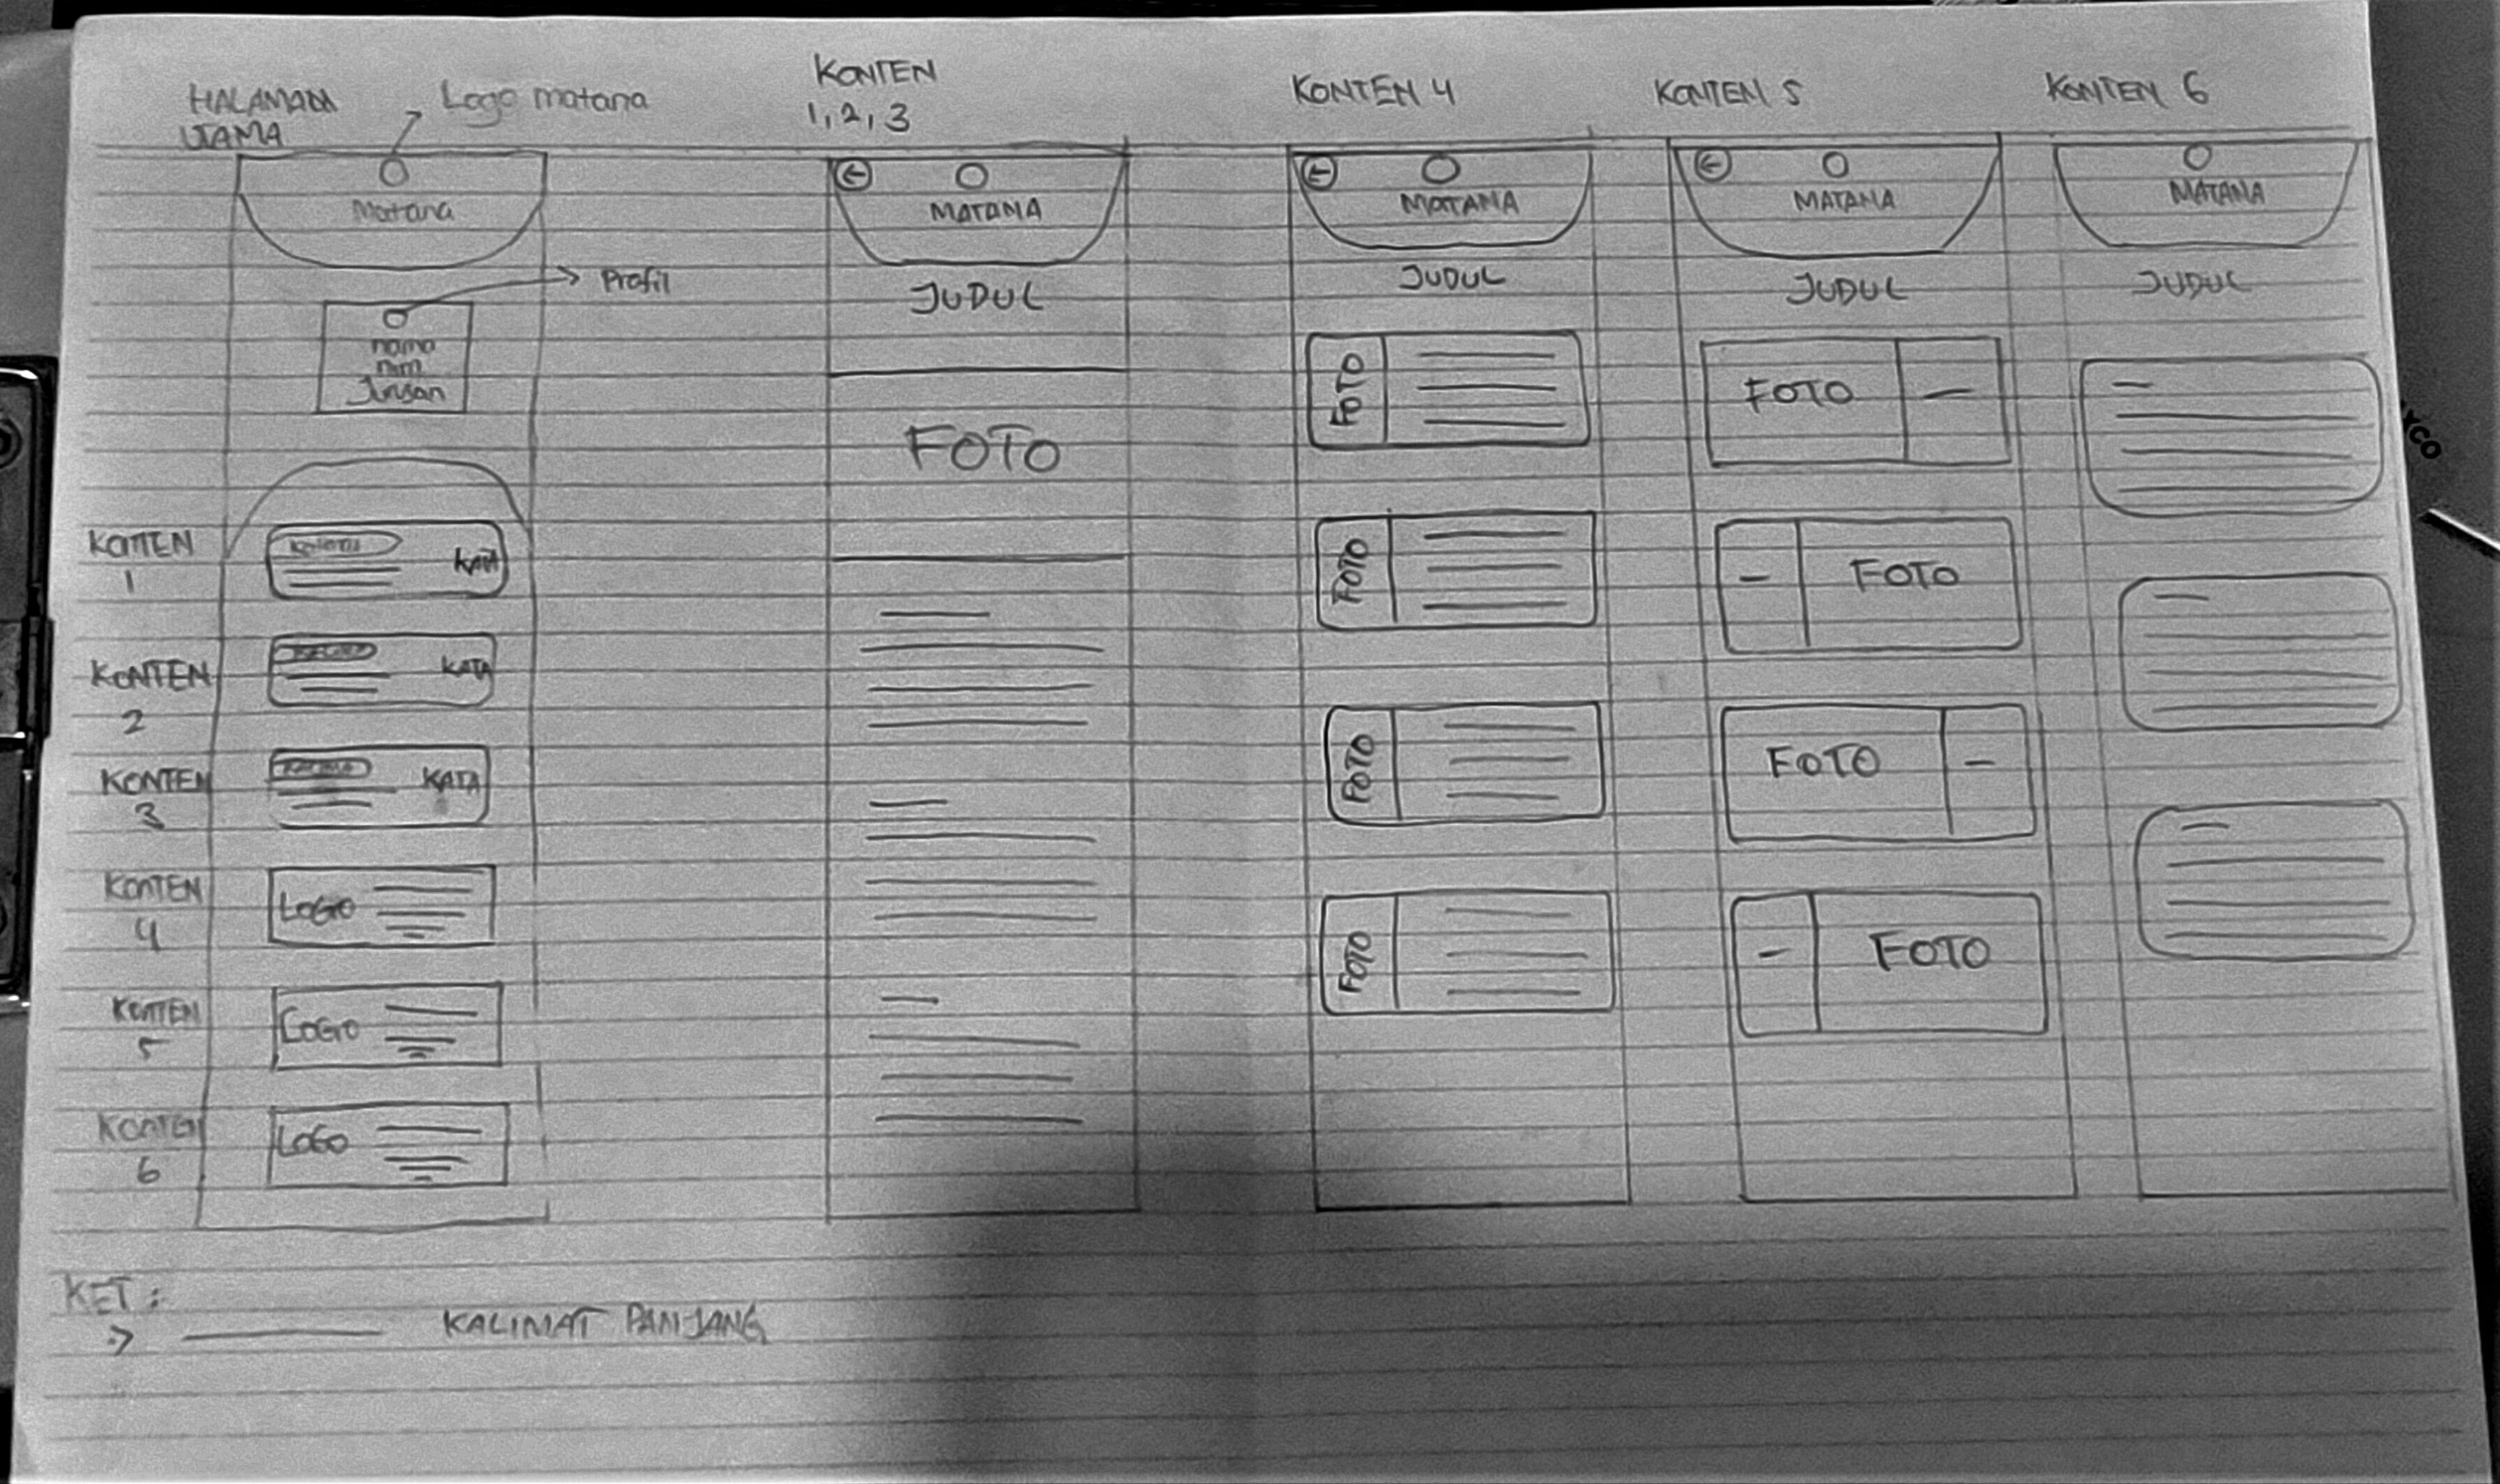 HALAMAN
UTAMA
Logo matana
Matana
Profil
nama
nim
Jurusan
KONTEN
1
KATA
KONTEN
2
KATA
KONTEN
3
KATA
KONTEN
4
LOGO
KONTEN
5
LOGO
KONTEN
6
LOGO
KONTEN
1, 2, 3
MATANA
JUDUL
FOTO
KONTEN 4
MATANA
JUDUL
FOTO
FOTO
FOTO
FOTO
KONTEN 5
MATANA
JUDUL
FOTO
FOTO
FOTO
FOTO
KONTEN 6
MATANA
JUDUL
KET :
KALIMAT PANJANG